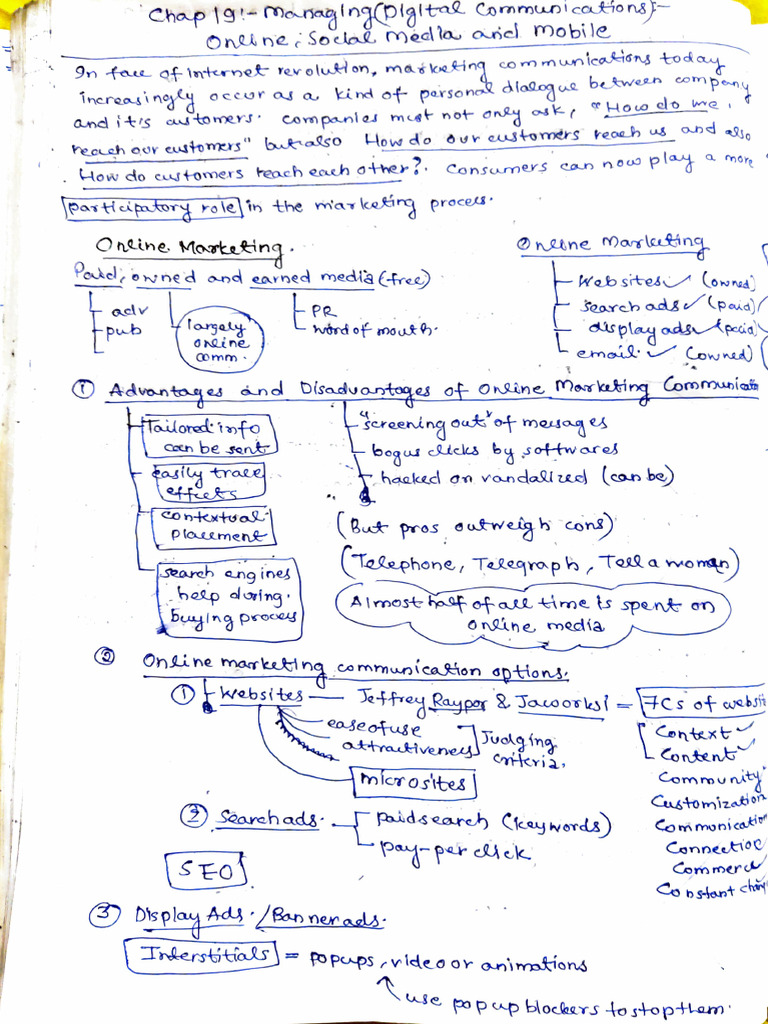 Chap 19:- Managing (Digital Communications):-
Online, Social Media and Mobile
In face of internet revolution, marketing communications today
increasingly occur as a kind of personal dialogue between company
and it's customers. Companies must not only ask, "How do we
reach our customers" but also How do our customers reach us and also
How do customers reach each other?. Consumers can now play a more
participatory role in the marketing process.
Online Marketing.
Paid, owned and earned media (free)
adv
pub
largely
online
comm.
PR
word of mouth.
Online Marketing
Websites ✓ (owned)
search ads ✓ (paid)
display ads ✓ (paid)
email ✓ (owned)
① Advantages and Disadvantages of Online Marketing Communicatio
Tailored info
can be sent
easily trace
effects
contextual
placement
search engines
help during
buying process
"screening out" of messages
bogus clicks by softwares
hacked on vandalized (can be)
(But pros outweigh cons)
(Telephone, Telegraph, Tell a woman)
Almost half of all time is spent on
online media
② Online marketing communication options.
① Websites — Jeffrey Raypor & Jaworski = 7Cs of websit
ease of use
attractiveness
Judging
criteria.
microsites
Context ✓
Content ✓
Community
Customization
Communication
Connectioc
Commerce
Constant chang
② Search ads. paid search (keywords)
pay-per click
SEO
③ Display Ads. / Banner ads.
Interstitials = popups, video or animations
use pop up blockers to stop them.